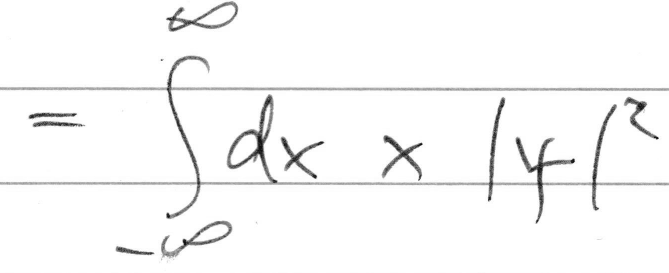 = ∫_{-∞}^{∞} dx x |ψ|²